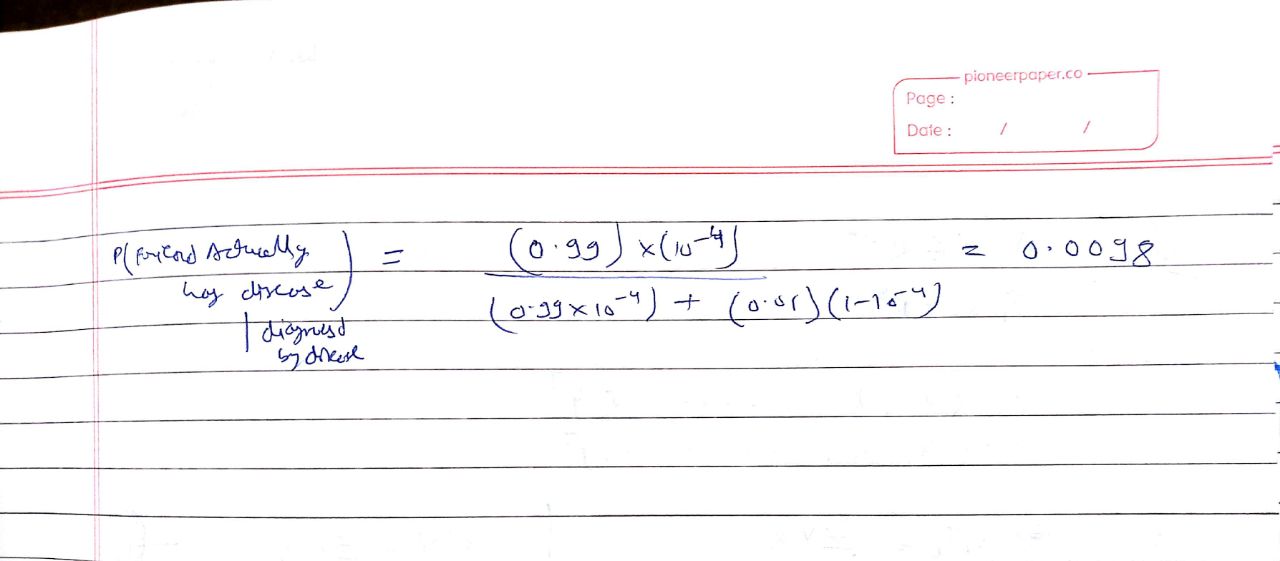 pioneerpaper.co
Page :
Date : / /
P(Friend Actually has disease | diagnosed by disease) = (0.99) x (10⁻⁴) / (0.99 x 10⁻⁴) + (0.01)(1-10⁻⁴) = 0.0098